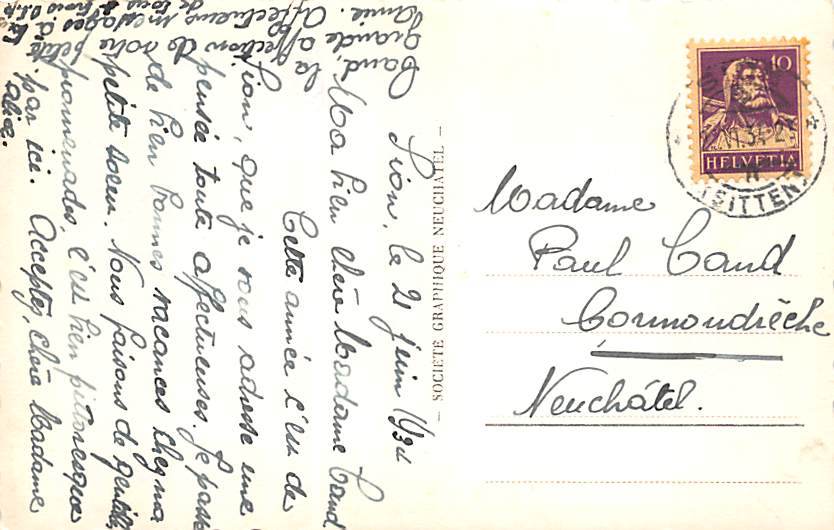 Sion, le 21 juin 1934
Ma bien chère Madame Cand
Cette année c'est de
Sion, que je vous adresse une
pensée toute affectueuse. Je passe
de bien bonnes vacances chez ma
petite soeur. Nous faisons de gentilles
promenades, c'est bien pittoresque
par ici. Acceptez, chère Madame
Cand, la
grande affection de votre petite
amie. Affectueux messages à
de tous trois
Alice.
– SOCIÉTÉ GRAPHIQUE NEUCHÂTEL –
10
HELVETIA
(SITTEN)
Madame
Paul Cand
Cormondrèche
Neuchâtel.